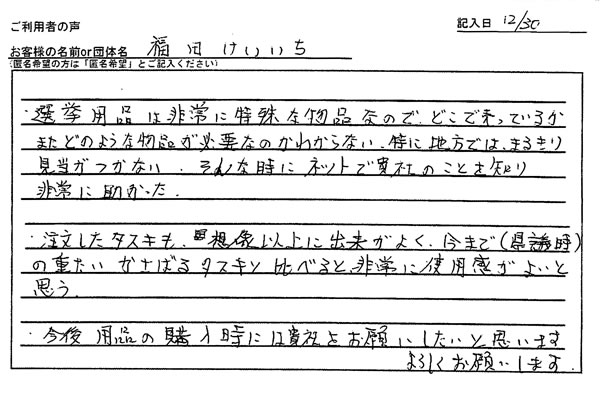 ご利用者の声
記入日 12/30
お客様の名前or団体名 福田けいいち
(匿名希望の方は「匿名希望」とご記入ください)
・選挙用品は非常に特殊な物品なので、どこで売っているか
またどのような物品が必要なのかわからない。特に地方では、まるきり
見当がつかない。そんな時にネットで貴社のことを知り
非常に助かった。
・注文したタスキも、想像以上に出来がよく、今まで(県議時)
の重たいかさばるタスキと比べると、非常に使用感がよいと
思う。
・今後用品の購入時には貴社をお願いしたいと思います
よろしくお願いします。